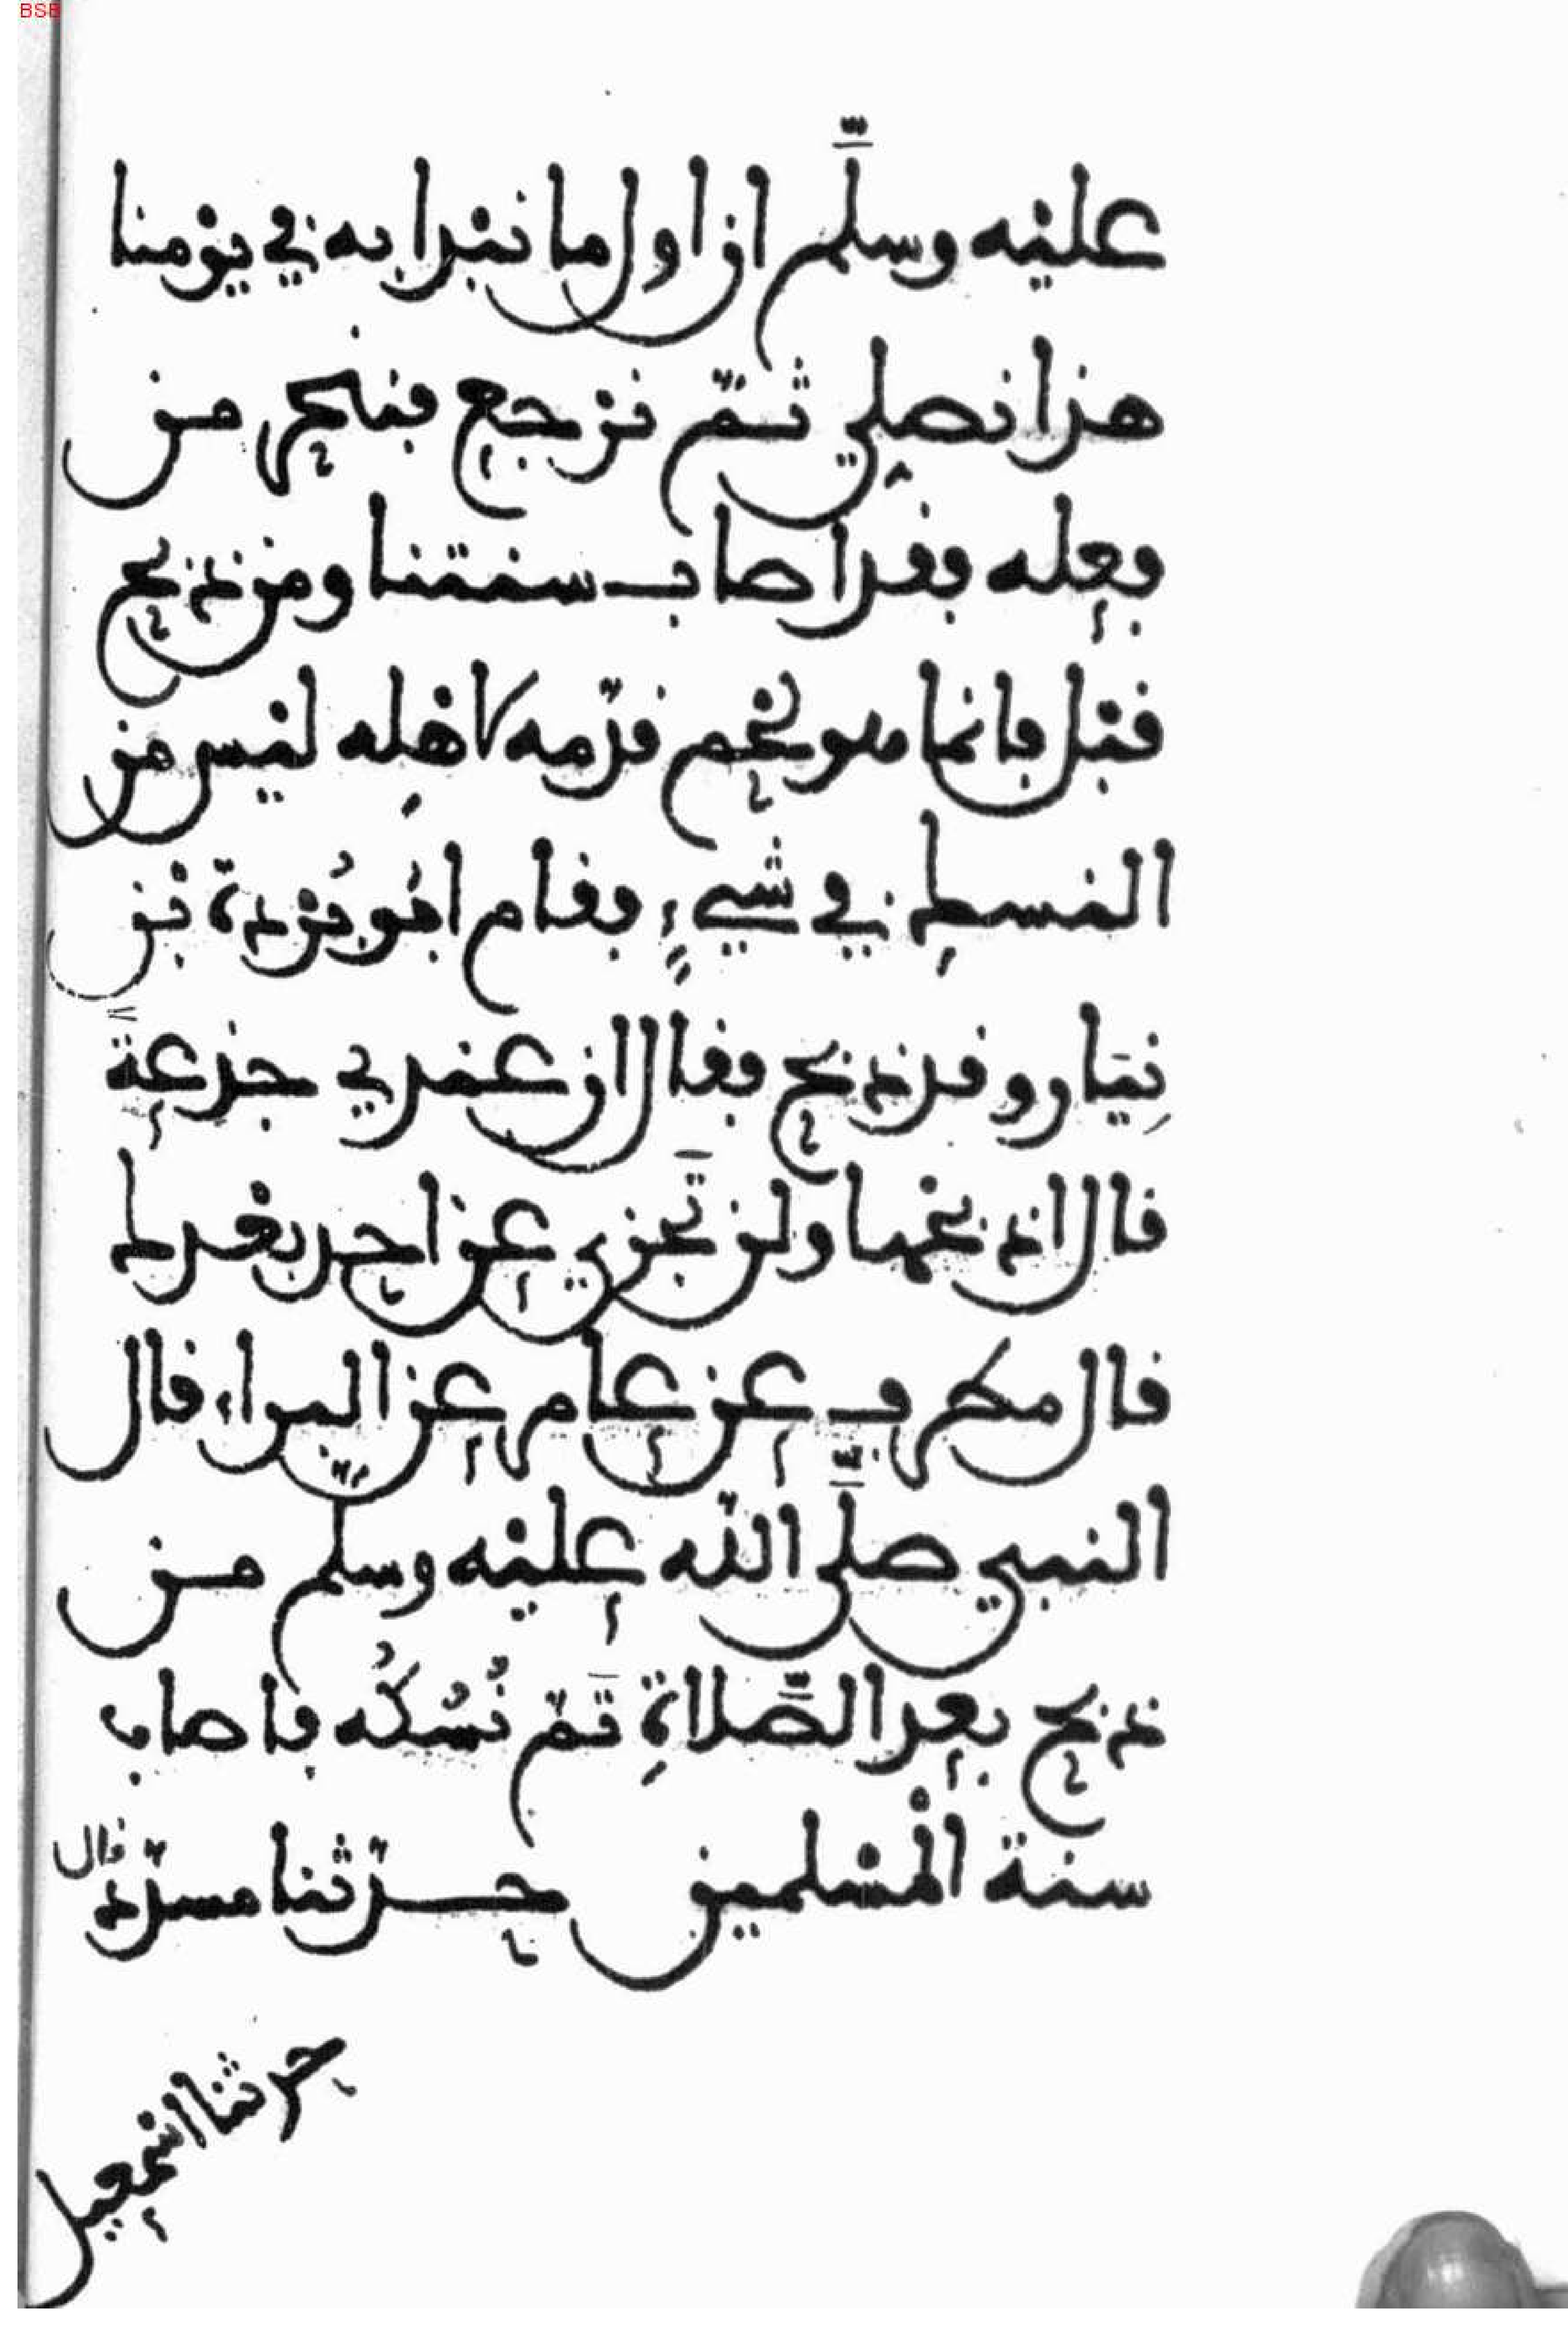 BSB
عليه وسلّم ان اول ما نبدا به في يومنا
هذا نصلي ثمّ نرجع فننحر من
فعله فقد اصاب سنتنا ومن ذبح
قبل فانما هو لحم قدّمه لاهلِه ليس من
النسكِ في شيءٍ فقام ابو بُرْدة بن
نِيَار وقد ذبح فقال ان عندي جذعة
قال اذبحها ولن تَجزي عن احد بعدك
قال مطرف عن عامر عن البراء قال
النبي صلَّى اللّه عليه وسلّم من
ذبح بعد الصَّلاةِ تَمّ نُسُكُه فاصاب
سنة الْمسْلمين حدّثنا مسدّد قال
حدثنا اسْمعيل